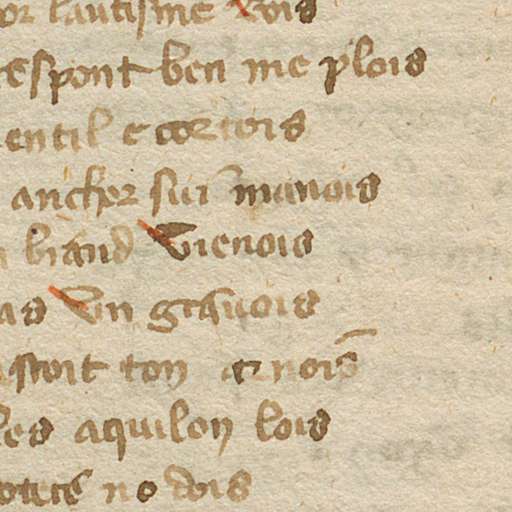 or lautisme Rois
respont ben me plois
entil e cortois
ancher sur manois
brand Vienois
as Un gravois
stoit ton arnois
les aquilon lois
no dois